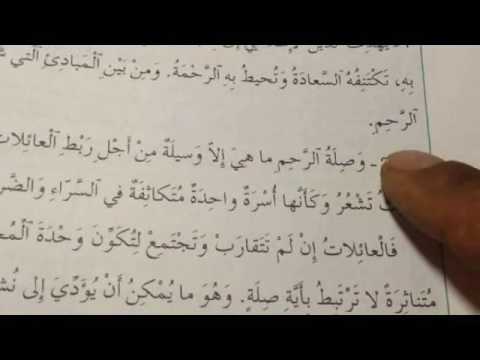 بِهِ، تَكْتَنِفُهُ ٱلسَّعادَةُ وَتُحيطُ بِهِ ٱلرَّحْمَةُ. وَمِنْ بَيْنِ ٱلْمَبادِئِ ٱلَّتي
ٱلرَّحِمِ.
ـ وَصِلَةُ ٱلرَّحِمِ ما هِيَ إِلاَّ وَسيلَةٌ مِنْ أَجْلِ رَبْطِ ٱلْعائِلات
تَشْعُرُ وَكَأَنَّها أُسْرَةٌ واحِدَةٌ مُتَكاثِفَةٌ في ٱلسَّرَاءِ وَٱلضَّر
فَٱلْعائِلاتُ إِنْ لَمْ تَتَقارَبْ وَتَجْتَمِعْ لِتُكَوِّنَ وَحْدَةَ ٱلْمُجـ
مُتَناثِرَةً لا تَرْتَبِطُ بِأَيَّةِ صِلَةٍ. وَهُوَ ما يُمْكِنُ أَنْ يُؤَدِّيَ إِلى نُشـ